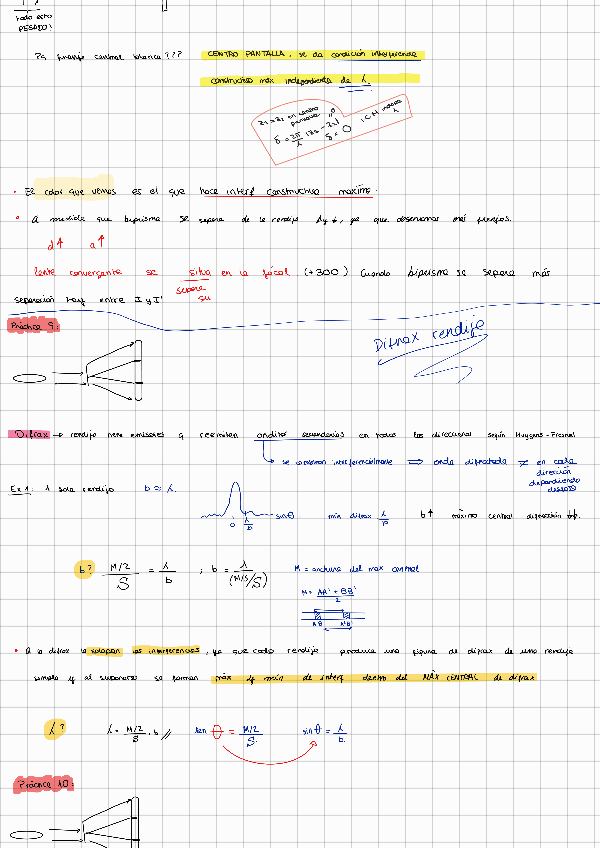 todo esto
PESADO!
Pq franja central blanca???
CENTRO PANTALLA, se da condición interferencia
constructiva máx independiente de λ.
r₁=r₂ en centro
pantalla
δ = 2π/λ (r₂ - r₁)
δ = 0
• El color que vemos es el que hace interf constructiva máxima.
• A medida que biprisma se separa de la rendija Δy ↓, ya que observamos más franjas.
d↑ a↑
lente convergente se situa en la focal (+300) Cuando biprisma se separa más
separa
su
separación hay entre I y I'
Práctica 9:
Difrax rendija
Difrax → rendija tiene emisores q reemiten onditas secundarias en todas las direcciones según Huygens-Fresnel
se combinan interferencialmente ⇒ onda difractada ≠ en cada
dirección
dependiendo
Ex 1: 1 sola rendija b ≈ λ.
0 λ/b sinθ
min difrax b↑ máximo central difracción
b? (M/2)/S = λ/b ; b = λ/(M/2/S)
M = anchura del max central
M = (AA' + BB')/2
AB A'B'
• A la difrax le solapan las interferencias, ya que cada rendija produce una figura de difrax de una rendija
simple y al superponerse se forman máx y mín de interf dentro del MÁX CENTRAL de difrax
λ? λ = (M/2)/S · b // tan θ = (M/2)/S sin θ = λ/b
Práctica 10: